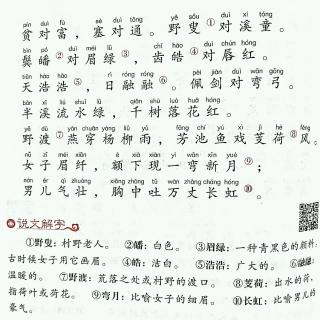 pín duì fù sài duì tōng yě sǒu duì xī tóng
贫对富，塞对通。野叟①对溪童。
bìn pó duì méi lǜ chǐ hào duì chún hóng
鬓皤②对眉绿③，齿皓④对唇红。
tiān hào hào rì róng róng pèi jiàn duì wān gōng
天浩浩⑤，日融融⑥。佩剑对弯弓。
bàn xī liú shuǐ lǜ qiān shù luò huā hóng
半溪流水绿，千树落花红。
yě dù yàn chuān yáng liǔ yǔ fāng chí yú xì jì hé fēng
野渡⑦燕穿杨柳雨，芳池鱼戏芰荷⑧风。
nǚ zǐ méi xiān é xià xiàn yì wān xīn yuè
女子眉纤，额下现一弯新月⑨；
nán ér qì zhuàng xiōng zhōng tǔ wàn zhàng cháng hóng
男儿气壮，胸中吐万丈长虹⑩。
说文解字
①野叟：村野老人。 ②皤：白色。 ③眉绿：一种青黑色的颜料，
古时候女子用它画眉。 ④皓：洁白。 ⑤浩浩：广大的。 ⑥融融：
温暖的。 ⑦野渡：荒落之处或村野的渡口。 ⑧芰荷：出水的荷，
指荷叶或荷花。 ⑨弯月：比喻女子的细眉。 ⑩长虹：比喻男儿的
豪气。